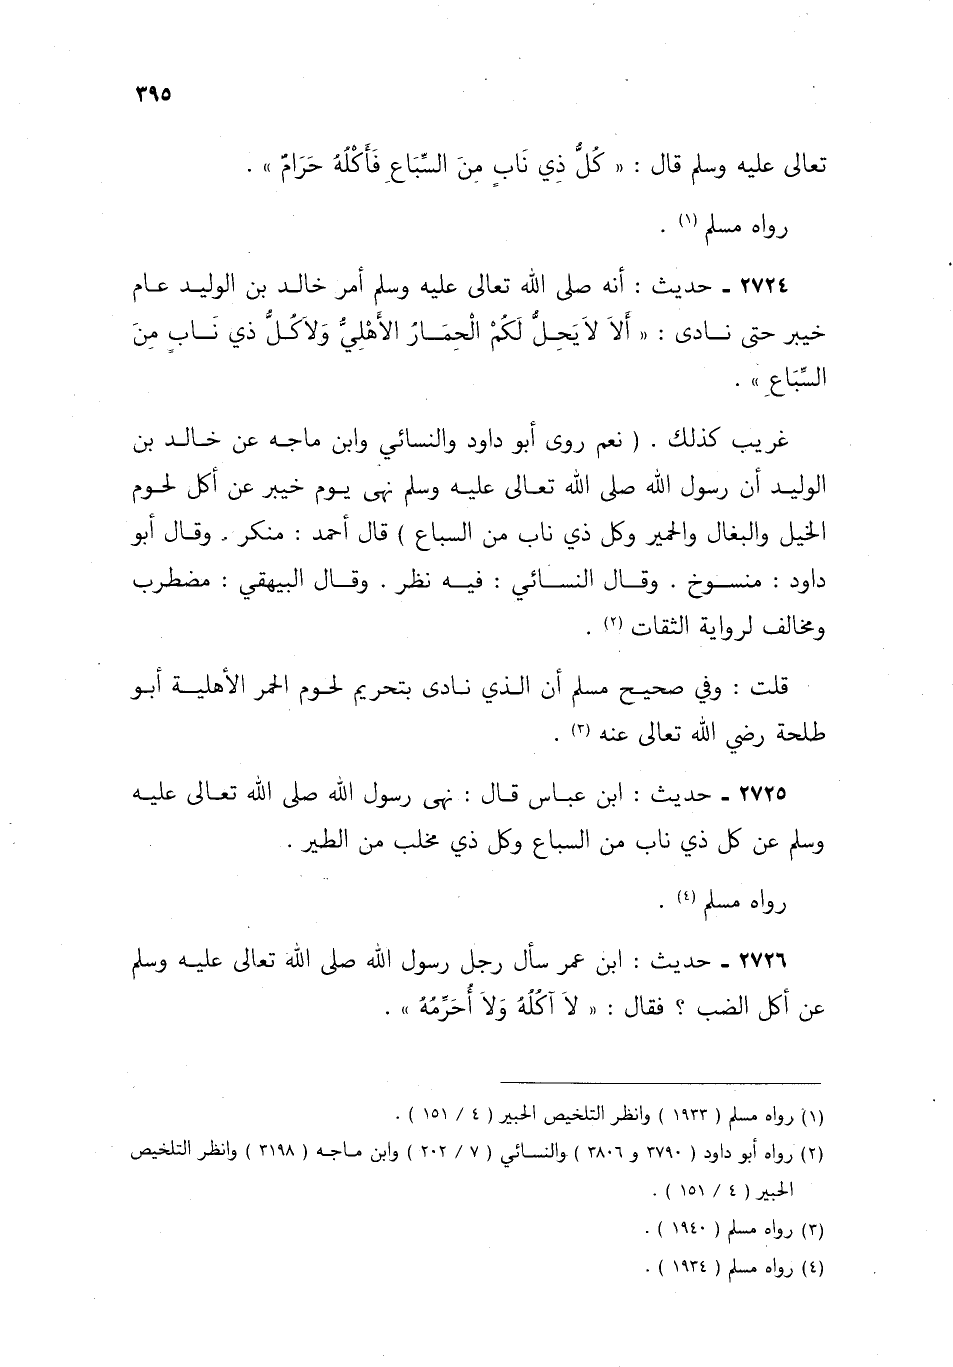 ٣٩٥
تعالى عليه وسلم قال : « كُلُّ ذِي نَابٍ مِنَ السِّبَاعِ فَأَكْلُهُ حَرَامٌ » .
رواه مسلم (١) .
٢٧٢٤ ـ حديث : أنه صلى الله تعالى عليه وسلم أمر خالد بن الوليد عام
خيبر حتى نادى : « أَلاَ لاَيَحِلُّ لَكُمْ الْحِمَارُ الأَهْلِيُّ وَلاَكُلُّ ذي نَابٍ مِنَ
السِّبَاعِ » .
غريب كذلك . ( نعم روى أبو داود والنسائي وابن ماجه عن خالد بن
الوليد أن رسول الله صلى الله تعالى عليه وسلم نهى يوم خيبر عن أكل لحوم
الخيل والبغال والحمير وكل ذي ناب من السباع ) قال أحمد : منكر . وقال أبو
داود : منسوخ . وقال النسائي : فيه نظر . وقال البيهقي : مضطرب
ومخالف لرواية الثقات (٢) .
قلت : وفي صحيح مسلم أن الذي نادى بتحريم لحوم الحمر الأهلية أبو
طلحة رضي الله تعالى عنه (٣) .
٢٧٢٥ ـ حديث : ابن عباس قال : نهى رسول الله صلى الله تعالى عليه
وسلم عن كل ذي ناب من السباع وكل ذي مخلب من الطير .
رواه مسلم (٤) .
٢٧٢٦ ـ حديث : ابن عمر سأل رجل رسول الله صلى الله تعالى عليه وسلم
عن أكل الضب ؟ فقال : « لاَ آكُلُهُ وَلاَ أُحَرِّمُهُ » .
(١) رواه مسلم ( ١٩٣٣ ) وانظر التلخيص الحبير ( ٤ / ١٥١ ) .
(٢) رواه أبو داود ( ٣٧٩٠ و ٣٨٠٦ ) والنسائي ( ٧ / ٢٠٢ ) وابن ماجه ( ٣١٩٨ ) وانظر التلخيص
الحبير ( ٤ / ١٥١ ) .
(٣) رواه مسلم ( ١٩٤٠ ) .
(٤) رواه مسلم ( ١٩٣٤ ) .